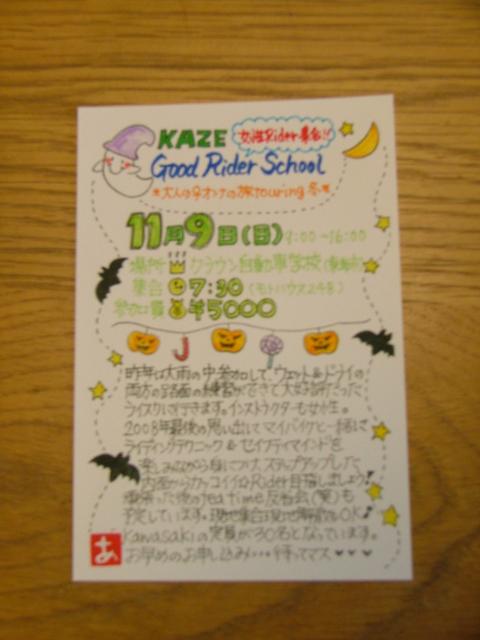 KAZE 女性Rider集合!!
Good Rider School
*大人の女オンナの旅touring 冬*
11月9日(日) 9:00~16:00
場所 クラウン自動車学校
集合 7:30 (モトハウス248)
参加費 ¥5000
昨年は大雨の中参加して、ウェット&ドライの
両方の路面の練習ができて大好評だった
ライスクに行きます。インストラクターも女性。
2008年最後の思い出にマイバイクと一緒に
ライディングテクニック&セイフティマインドを
楽しみながら身につけ、ステップアップした
内面からカッコイイRider目指しましょう♪
頑張った後のtea time反省会(笑)も
予定しています。現地集合現地解散もOK♪
Kawasakiの定員が30名となっています。
お早めのお申し込み…待ってマス♥♥♥
あ